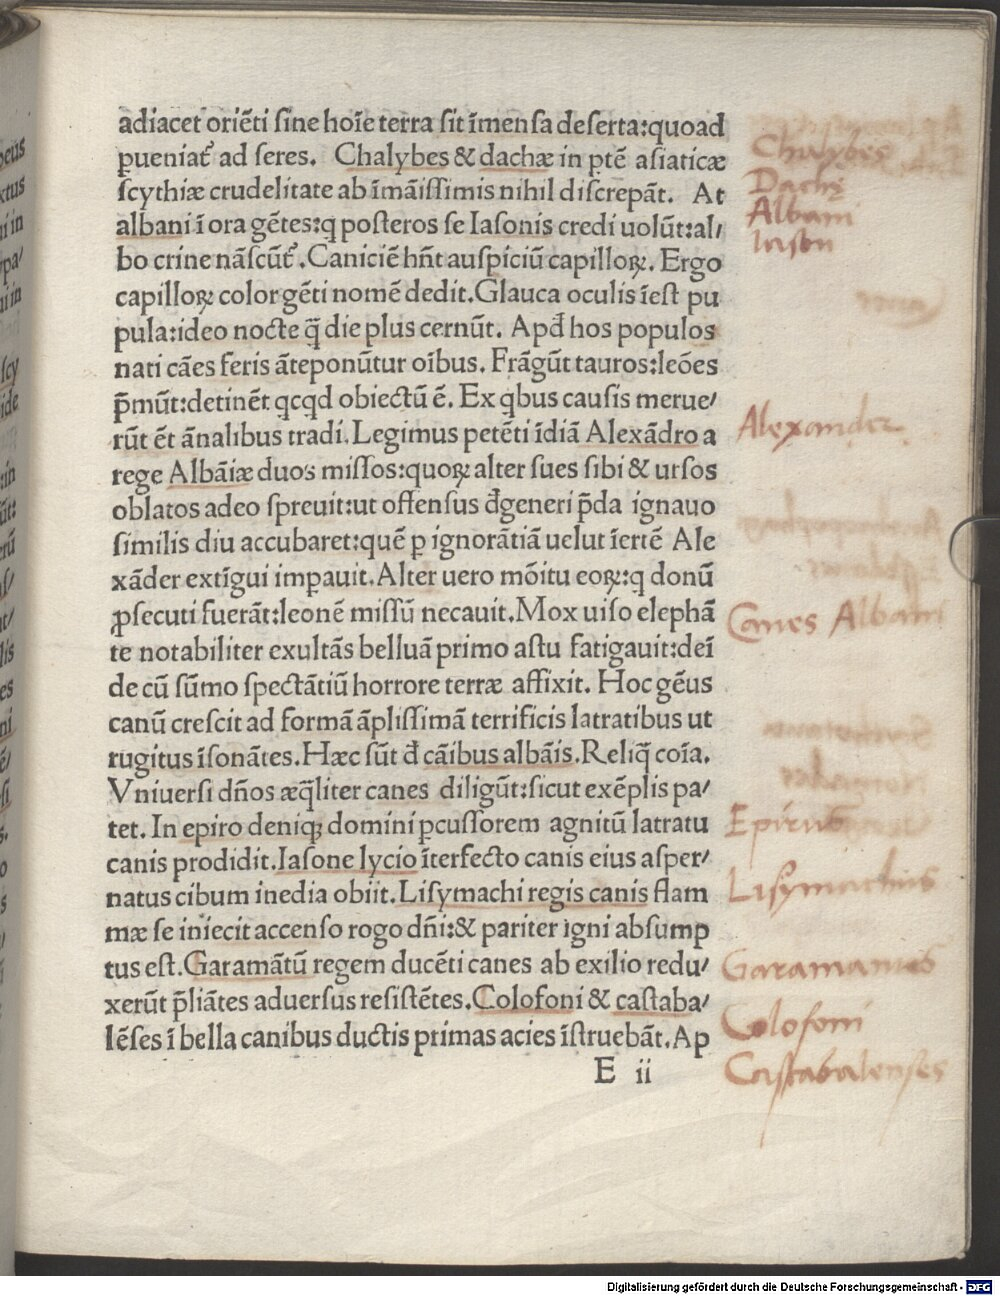 adiacet oriẽti ſine hoĩe terra ſit ĩmenſa deſerta:quoad
ꝑueniat᷑ ad ſeres. Chalybes & dachæ in ꝑtẽ aſiaticæ
ſcythiæ crudelitate ab ĩmãiſſimis nihil diſcrepãt. At
albani ĩ ora gẽtes:q poſteros ſe Iaſonis credi uolũt:al/
bo crine nãſcũt᷑.Caniciẽ hñt auſpiciũ capilloꝝ. Ergo
capilloꝝ color gẽti nomẽ dedit.Glauca oculis ĩeſt pu
pula:ideo nocte q̃ die plus cernũt. Apđ hos populos
nati cães feris ãteponũtur oĩbus. Frãgũt tauros:leões
p̃mũt:detinẽt qcqd obiectũ ẽ. Ex qbus cauſis merue/
rũt ẽt ãnalibus tradi.Legimus petẽti ĩdiã Alexãdro a
rege Albãiæ duos miſſos:quoꝝ alter ſues ſibi & urſos
oblatos adeo ſpreuit:ut offenſus đgeneri p̃da ignauo
ſimilis diu accubaret:quẽ ꝑ ignorãtiã uelut ĩertẽ Ale
xãder extĩgui impauit.Alter uero mõitu eoꝝ:q donũ
ꝓſecuti fuerãt:leonẽ miſſũ necauit.Mox uiſo elephã
te notabiliter exultãs belluã primo aſtu fatigauit:deĩ
de cũ ſũmo ſpectãtiũ horrore terræ affixit. Hoc gẽus
canũ creſcit ad formã ãpliſſimã terrificis latratibus ut
rugitus ĩſonãtes.Hæc ſũt đ cãibus albãis.Reliq̃ coĩa.
Vniuerſi dños æq̃liter canes diligũt:ſicut exẽplis pa/
tet. In epiro deniqꝫ domini ꝑcuſſorem agnitũ latratu
canis prodidit.Iaſone lycio ĩterfecto canis eius aſper/
natus cibum inedia obiit.Liſymachi regis canis flam
mæ ſe iniecit accenſo rogo dñi:& pariter igni abſump
tus eſt.Garamãtũ regem ducẽti canes ab exilio redu/
xerũt p̃liãtes aduerſus reſiſtẽtes.Colofoni & caſtaba/
lẽſes ĩ bella canibus ductis primas acies ĩſtruebãt.Ap
E ii
Chalybes
Dachę
Albani
Iason
Alexander
Canes Albani
Epirus
Lisymachus
Garamantes
Colofoni
Castabalenses
Digitalisierung gefördert durch die Deutsche Forschungsgemeinschaft - DFG